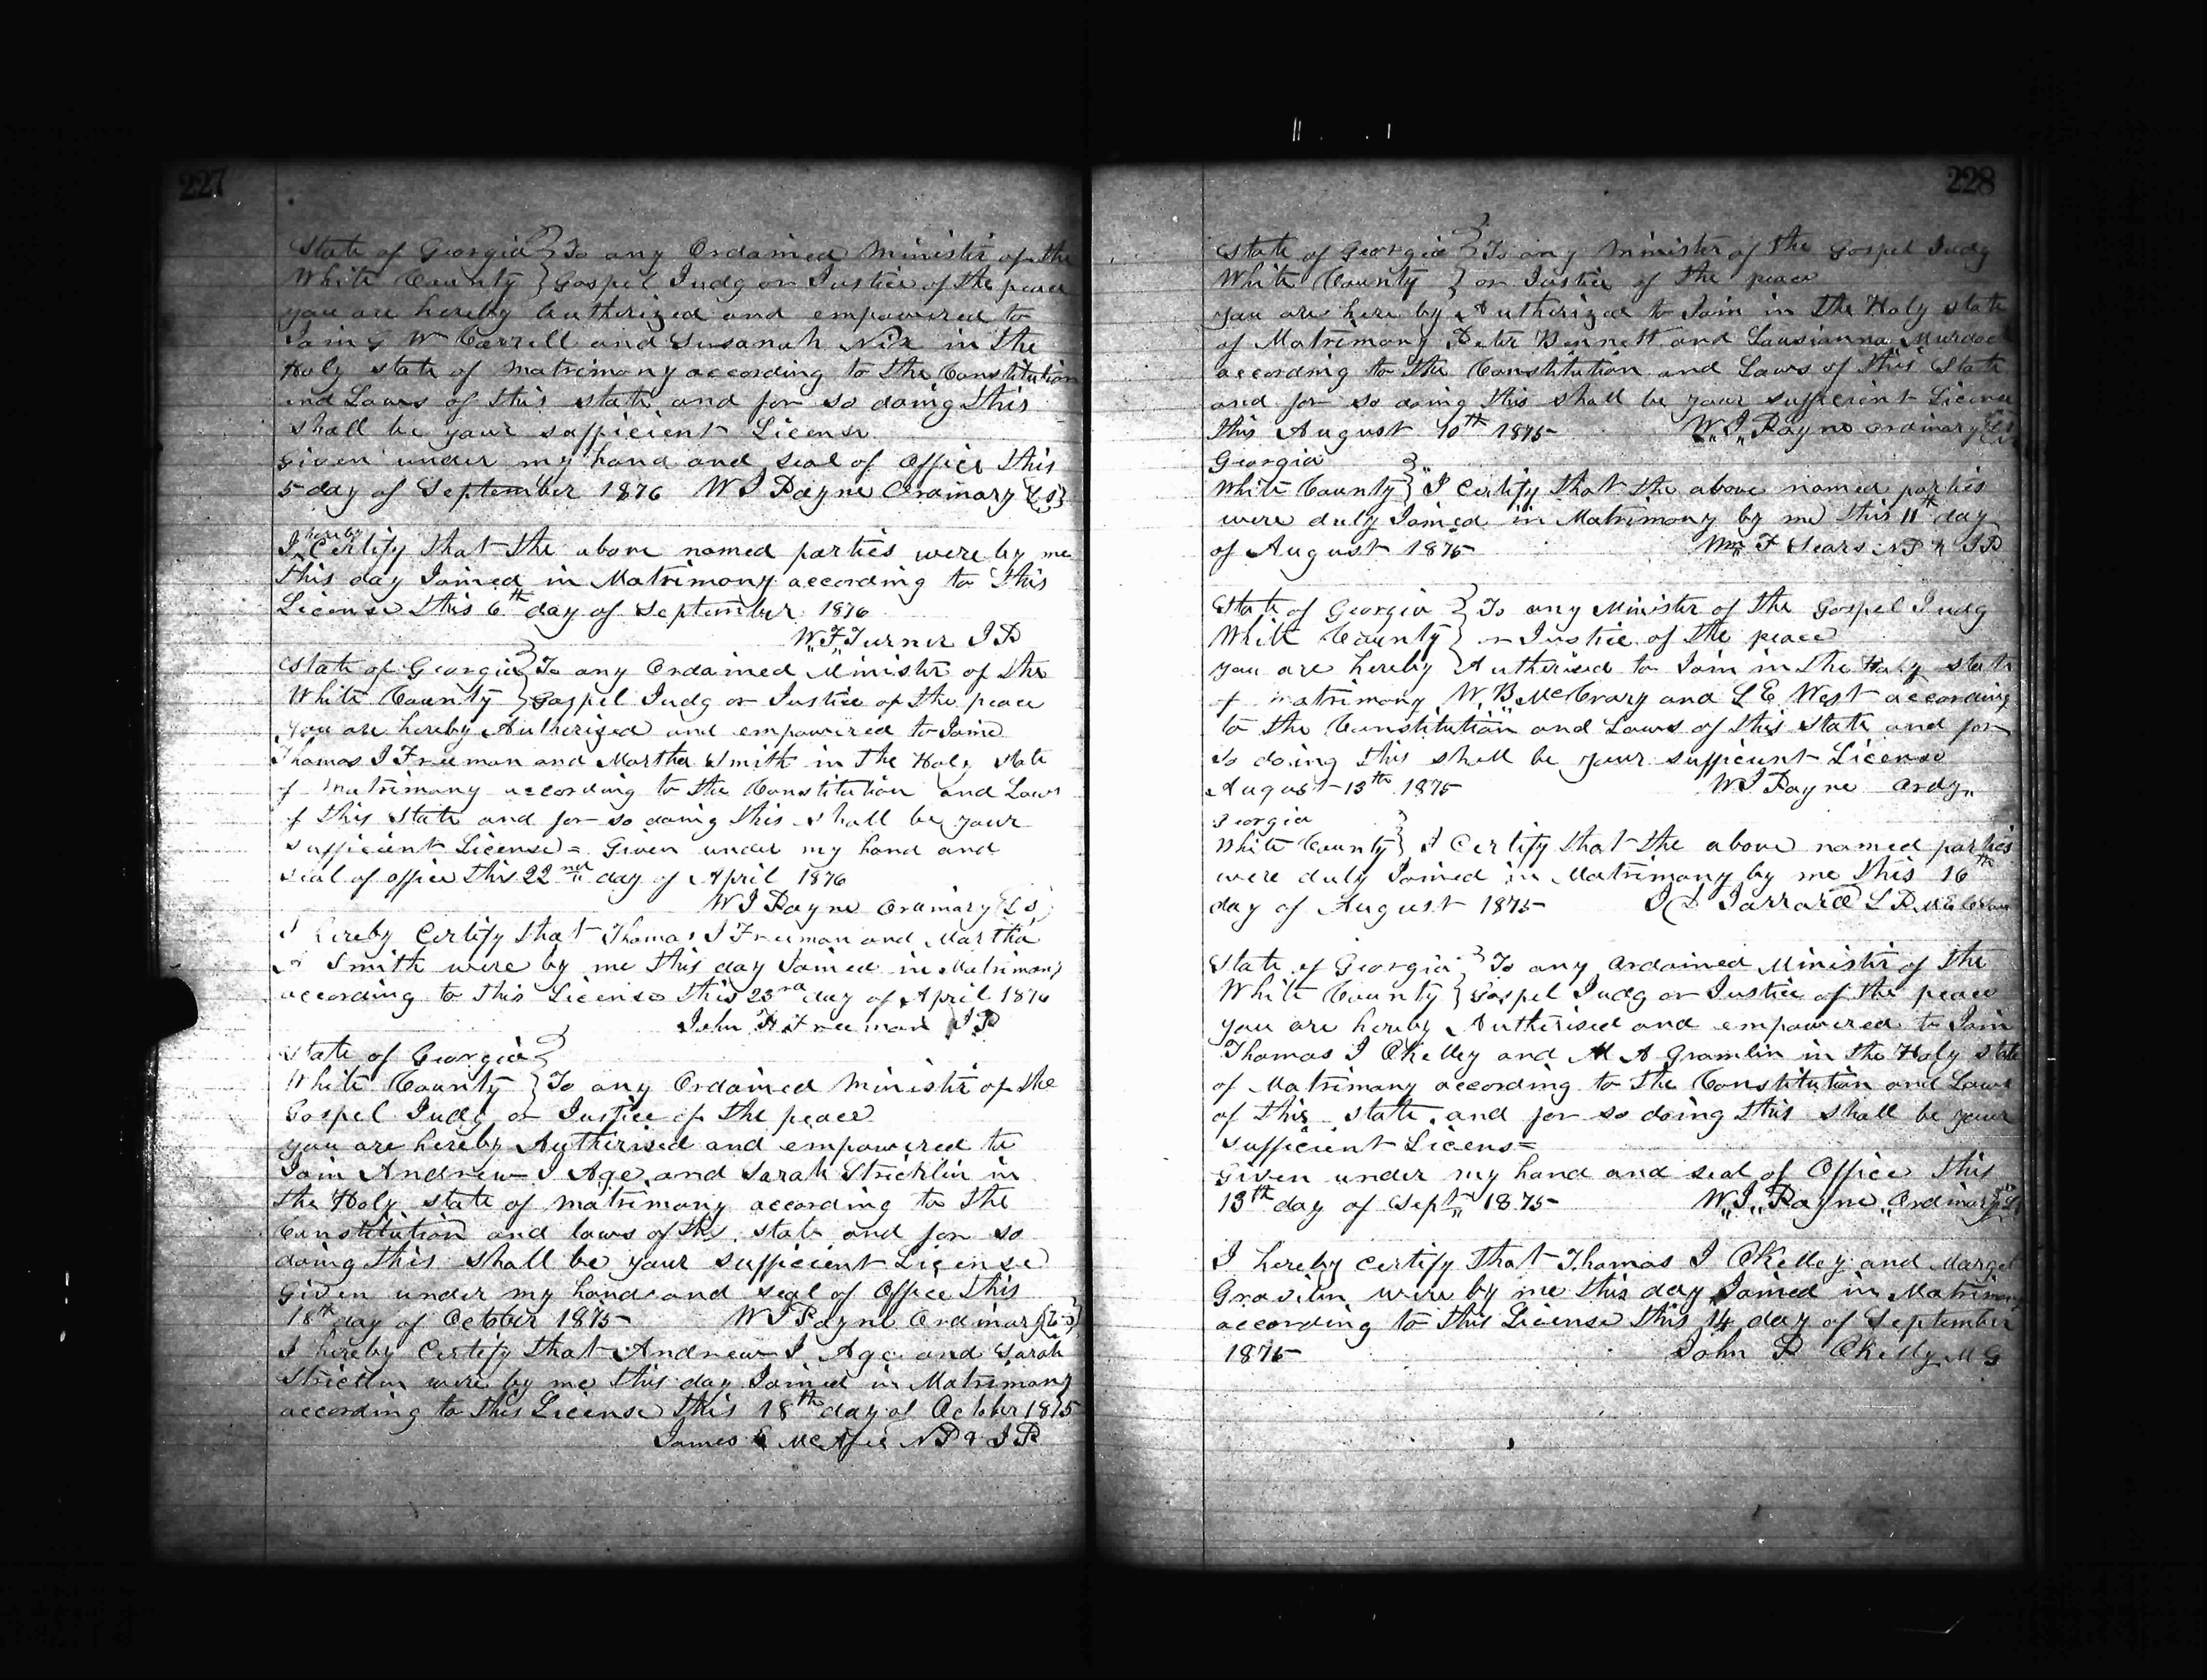 227
State of Georgia } To any Ordained Minister of the
White County } Gospel Judg or Justice of the peace
you are hereby Authorized and empowered to
Join G W Carrell and Susanah Nix in the
Holy state of matrimony according to the Constitution
and Laws of this state and for so doing this
shall be your sufficient License
Given under my hand and seal of Office this
5 day of September 1876 W J Payne Ordinary {L S}
I hereby Certify that the above named parties were by me
this day Joined in Matrimony according to this
License this 6th day of September 1876
W. F. Turner J P
State of Georgia } To any Ordained Minister of the
White County } Gospel Judg or Justice of the peace
you are hereby Autherized and empowered to Joine
Thomas J Freeman and Martha Smith in the Holy state
of matrimony according to the Constitution and Laws
of this State and for so doing this shall be your
sufficient License = Given under my hand and
seal of office this 22nd day of April 1876
W J Payne Oranary {L S}
I hereby Certify that Thomas J Freeman and Martha
Smith were by me this day Joined in Matrimony
according to this License this 23rd day of April 1876
John Freeman J P
State of Georgia }
White County } To any Ordained Minister of the
Gospel Judg or Justice of the peace
you are hereby Autherised and empowered to
Join Andrew J Age and Sarah Stricklin in
the Holy state of matrimony according to the
Constitution and laws of this state and for so
doing this shall be your sufficient License
Given under my hand and seal of Office this
18th day of October 1875 W J Payne Ordinary {L S}
I hereby Certify that Andrew J Age and Sarah
Stricklin were by me this day Joined in Matrimony
according to this License this 18th day of October 1875
James McAfee N P & J P
228
State of Georgia } To any Minister of the Gospel Judg
White County } or Justice of the peace
you are here by Autherized to Join in the Holy state
of Matrimony Peter Bennett and Lousianna Murdock
according to the Constitution and Laws of this State
and for so doing this shall be your sufficient License
this August 10th 1875 W. J. Payne ordinary
Georgia
White County } I Certify that the above named parties
were duly Joined in Matrimony by me this 11th day
of August 1875 Wm F Sears N P & J P
State of Georgia } To any Minister of the Gospel Judg
White County } or Justice of the peace
you are hereby Autherised to Join in the Holy state
of matrimony W. B. McCrary and L E West according
to the Constitution and Laws of this State and for
so doing this shall be your sufficient License
August 13th 1875 W J Payne Ordy
Georgia
White County } I Certify that the above named parties
were duly Joined in Matrimony by me this 16th
day of August 1875 Jarrard L P
State of Georgia } To any Ordained Minister of the
White County } Gospel Judg or Justice of the peace
you are hereby Autherised and empowered to Join
Thomas J OKelley and M A Gramlin in the Holy state
of Matrimony according to the Constitution and Laws
of this state and for so doing this shall be your
sufficient Licens =
Given under my hand and seal of Office this
13th day of Sept 1875 W. J. Payne Ordinary
I hereby certify that Thomas J OKelley and Marget
were by me this day Joined in Matrimony
according to this License this 14 day of September
1875 John P OKelly M G